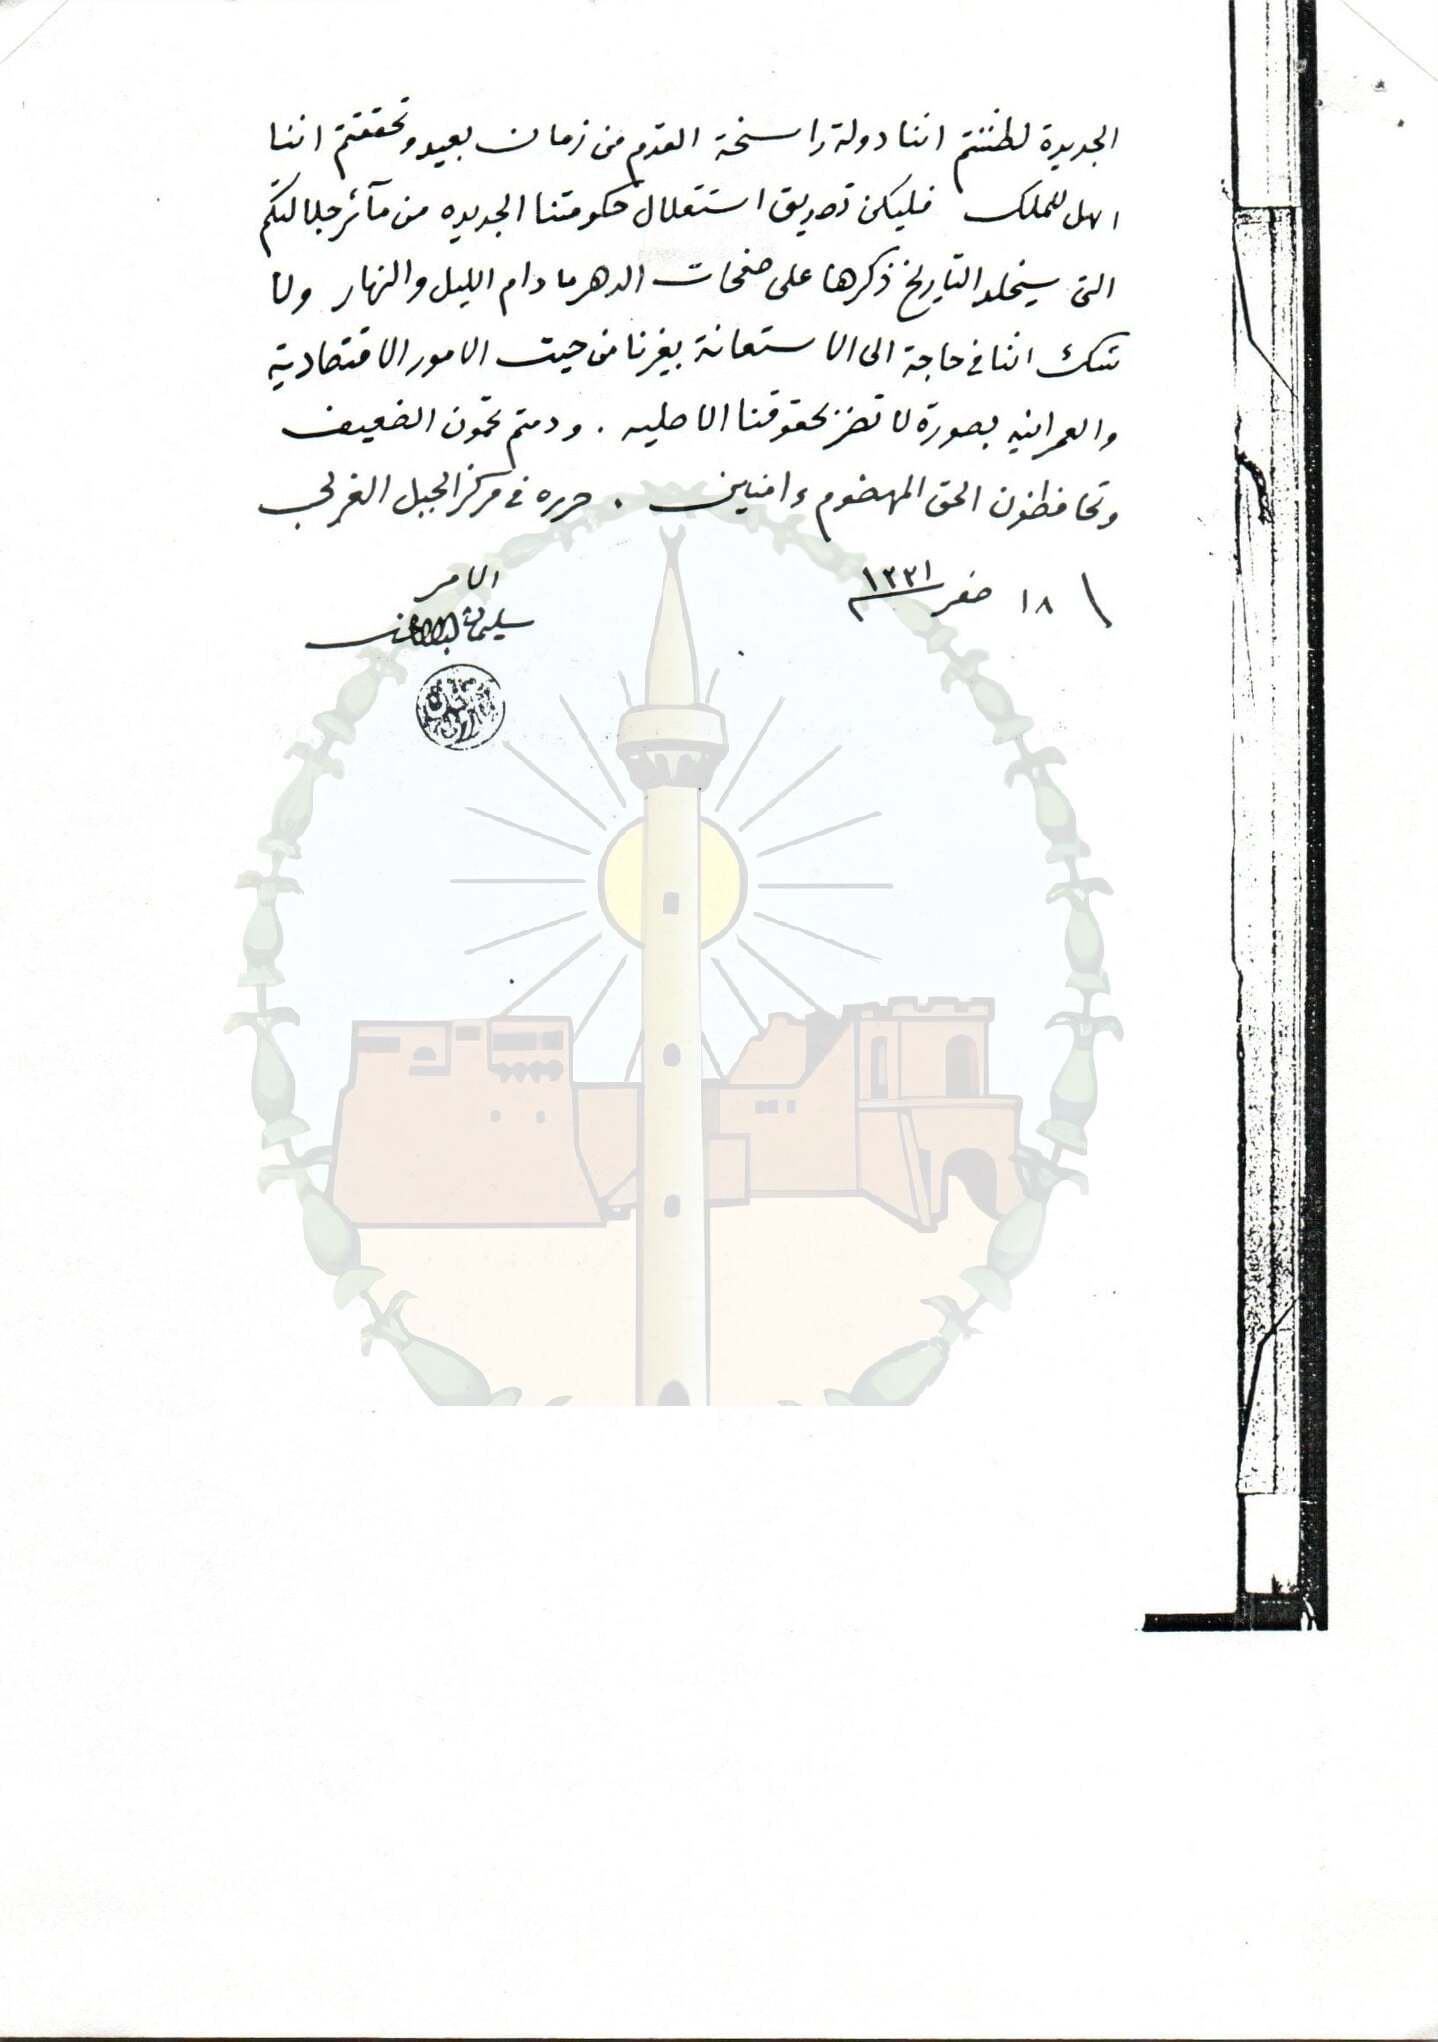 الجديدة لظننتم اننا دولة راسخة القدم من زمان بعيد وتحققتم اننا
اهل للملك فليكن تصديق استقلال حكومتنا الجديده من مآثر جلالتكم
التى سيخلد التاريخ ذكرها على صفحات الدهر ما دام الليل والنهار ولا
شك اننا فى حاجة الى الاستعانة بغيرنا من حيث الامور الاقتصادية
والعمرانيه بصورة لا تضر بحقوقنا الاصليه . ودمتم تحمون الضعيف
وتحافظون الحق المهضوم ءامنين . حرره فى مركز الجبل الغربى
١٨ صفر ١٣٣١
الامر
سليمان